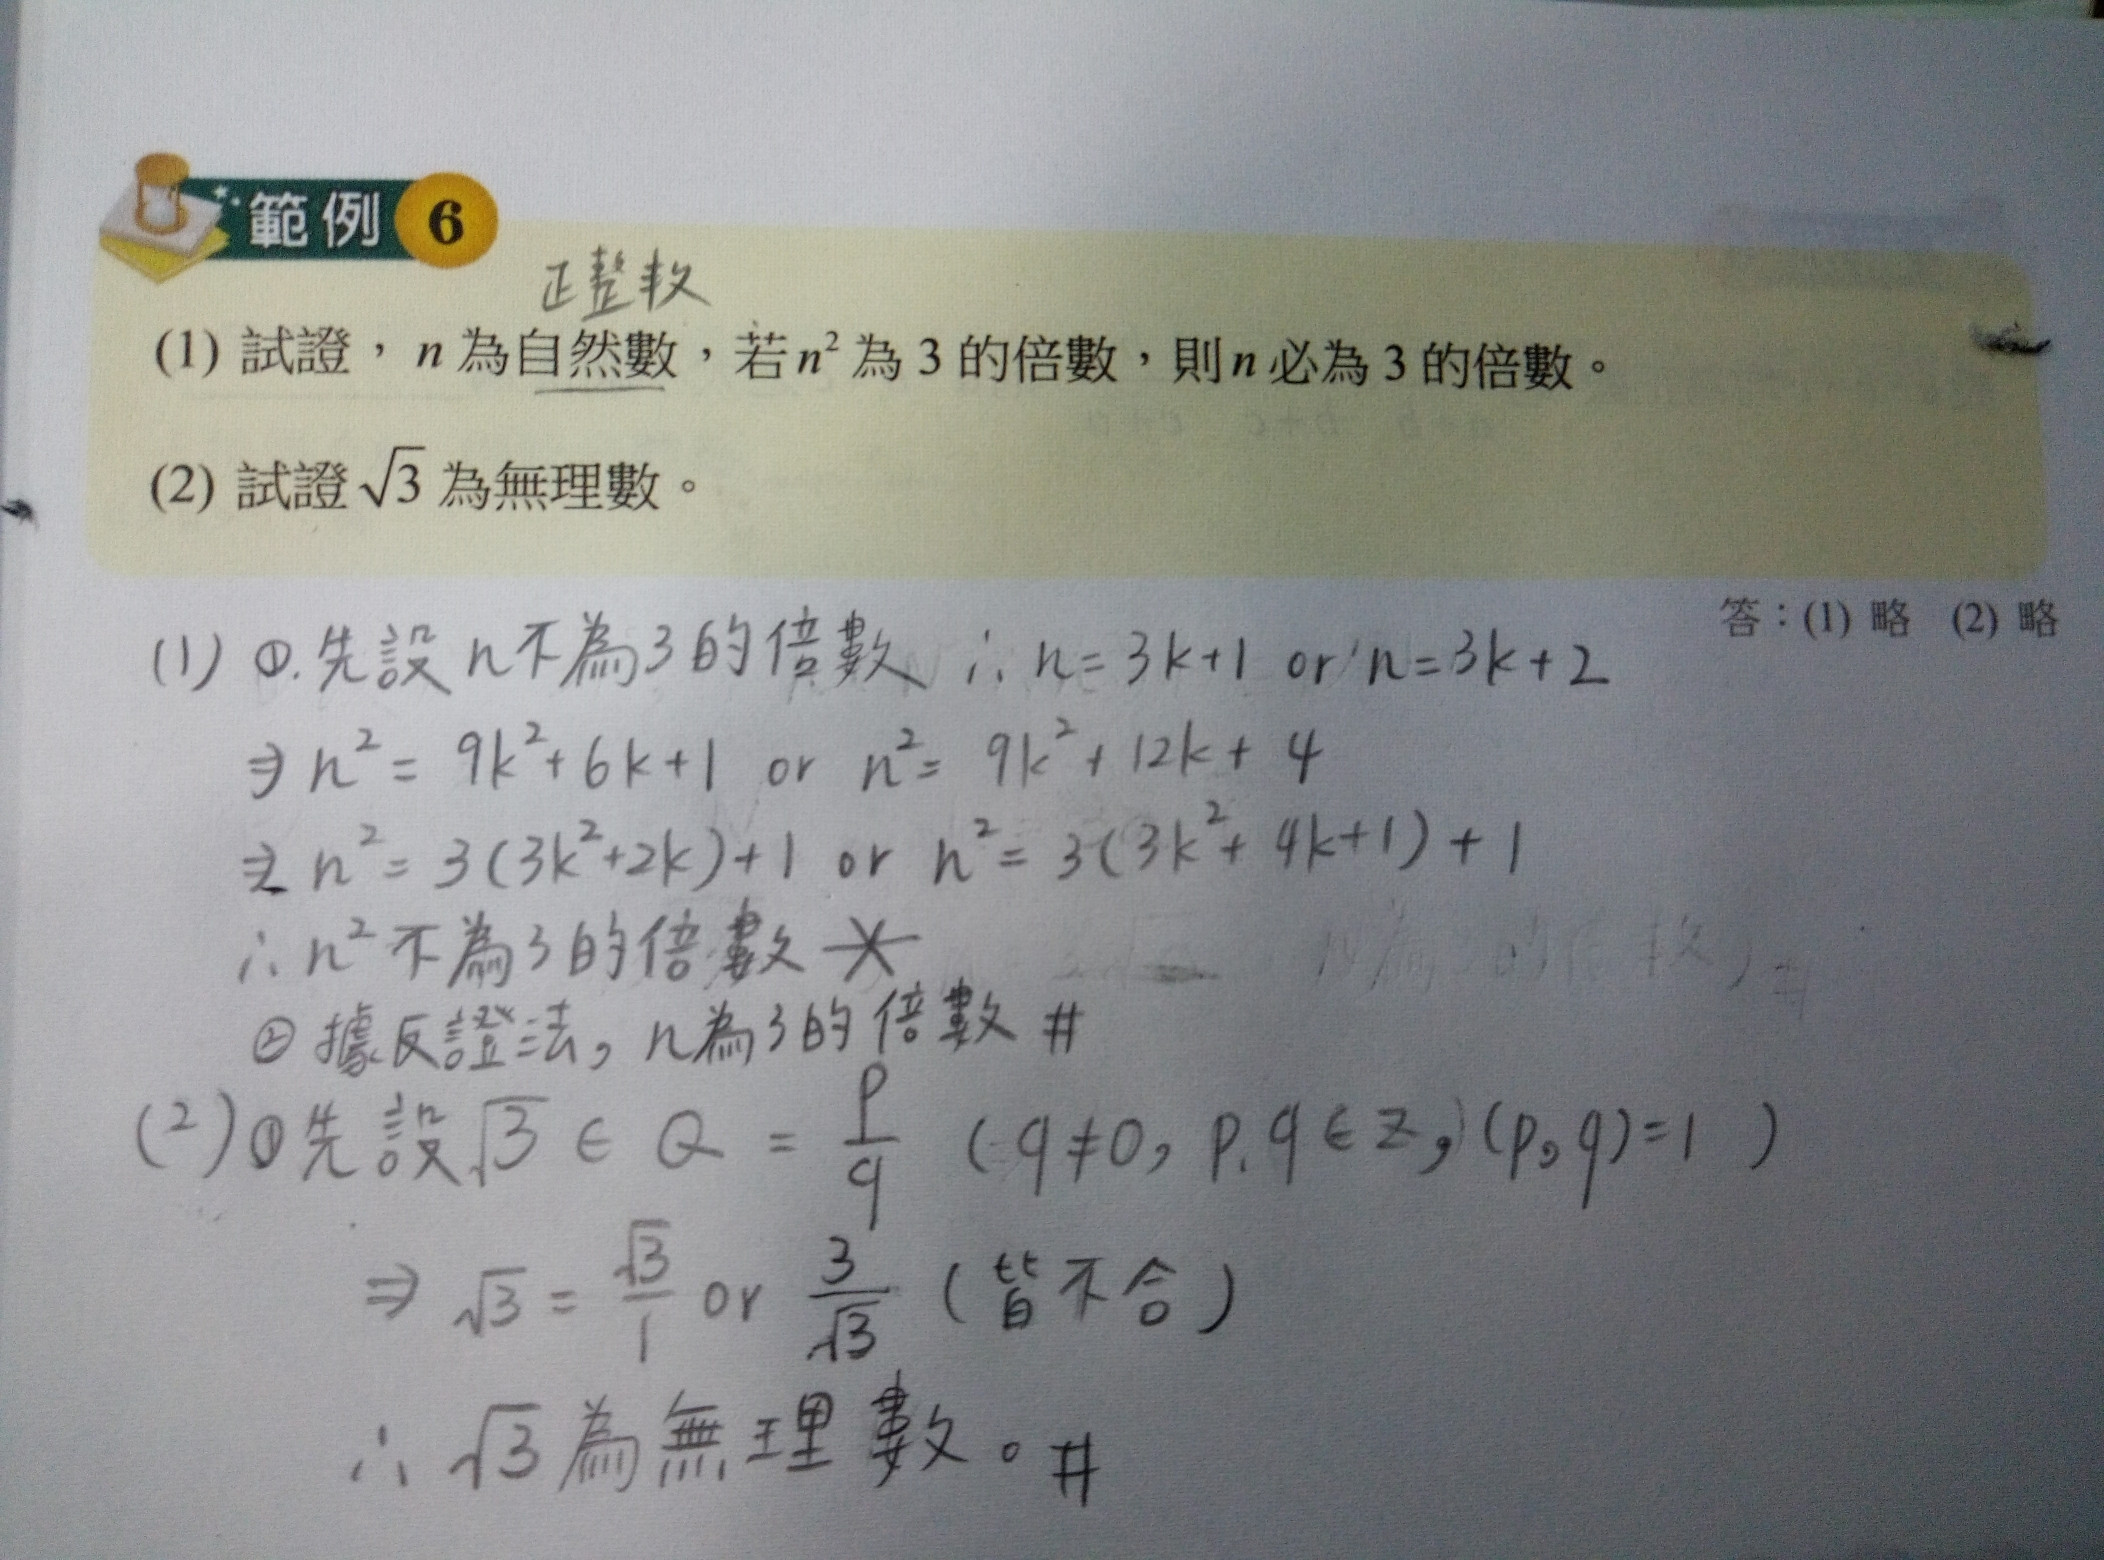 範例 6
正整数
(1) 試證，n 為自然數，若 n² 為 3 的倍數，則 n 必為 3 的倍數。
(2) 試證 √3 為無理數。
答：(1) 略 (2) 略
(1) ①.先設 n不為3的倍數 ∴ n=3k+1 or n=3k+2
⇒ n² = 9k²+6k+1 or n²= 9k²+12k+4
⇒ n² = 3(3k²+2k)+1 or n²= 3(3k²+4k+1)+1
∴ n² 不為3的倍數 ※
② 據反證法, n為3的倍數 #
(2) ①先設 √3 ∈ Q = p/q (q≠0, p.q ∈ Z, (p,q)=1 )
⇒ √3 = √3/1 or 3/√3 (皆不合)
∴ √3 為無理數。#